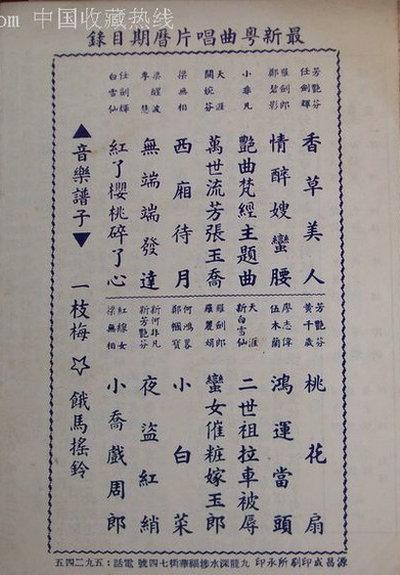 .com 中国收藏热线
最新粵曲唱片曆期目錄
芳艷芬
任劍輝
香草美人
羅劍郎
鄭碧影
情醉嫂蠻腰
艷曲梵經主題曲
天涯
關婉芬
萬世流芳張玉喬
梁無相
西廂待月
梁醒波
李慧
無端端發達
任劍輝
白雪仙
紅了櫻桃碎了心
芳艷芬
黃千歲
桃花扇
廖志偉
伍木蘭
鴻運當頭
天涯
新白雪仙
二世祖拉車被辱
羅劍郎
羅麗娟
蠻女催粧嫁玉郎
鄭幗寶
小白菜
新何非凡
新芳艷芬
夜盜紅綃
紅線女
梁無相
小喬戲周郎
▲音樂譜子▼ 一枝梅 ☆ 餓馬搖鈴
源昌成印刷所承印 九龍深水埗福華街七四號 電話:五九二四五